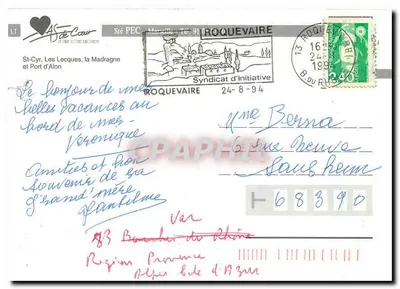 As de Cœur
L1
Sté PEC
St-Cyr, Les Lecques, la Madragne
et Port d'Alon
ROQUEVAIRE
Syndicat d'Initiative
ROQUEVAIRE 24-8-94
13 ROQUEVAIRE
16
24-
1994
B DU RH
2,40
Le bonjour de mes
belles vacances au
bord de mer
Véronique
Amitiés et bon
souvenir de sa
Grand'mère
Mme Berna
2 rue Neuve
Sausheim
T 68390
Var
83 Bouches du Rhône
Region Provence
Alpes Côte d'Azur